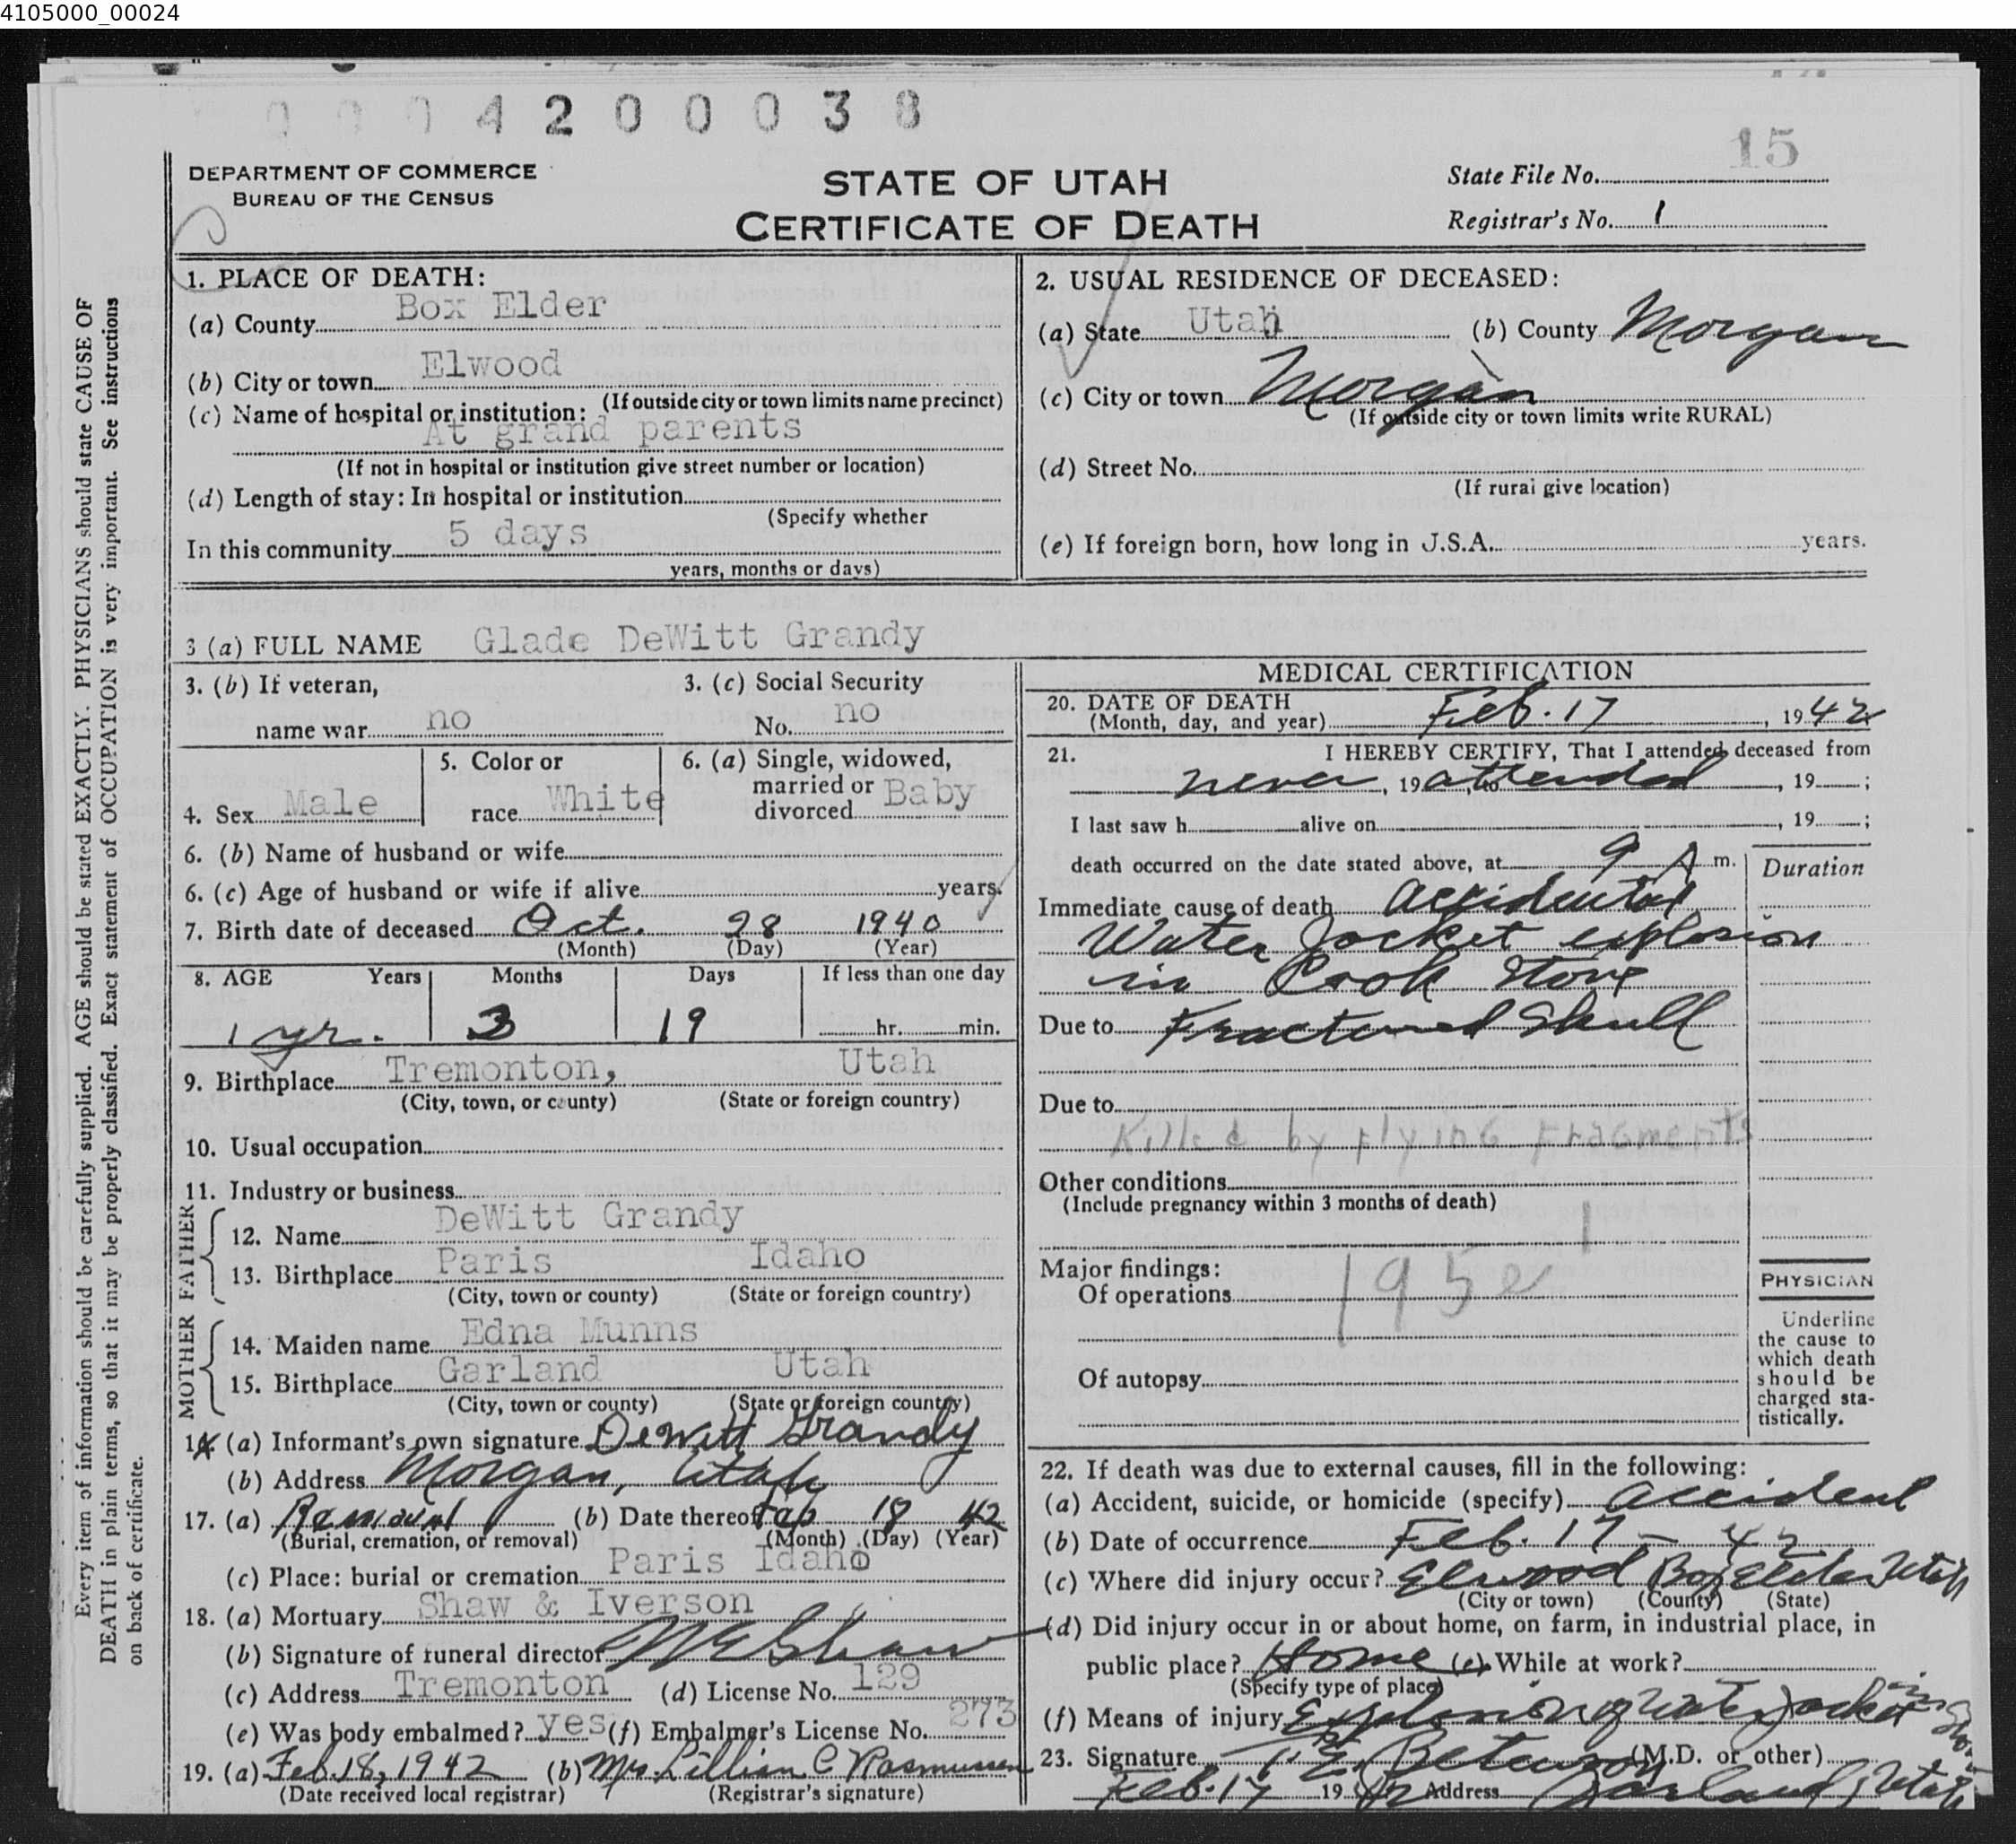 4105000_00024
0004200038
15
DEPARTMENT OF COMMERCE
BUREAU OF THE CENSUS
STATE OF UTAH
CERTIFICATE OF DEATH
State File No.
Registrar's No. 1
Every item of information should be carefully supplied. AGE should be stated EXACTLY. PHYSICIANS should state CAUSE OF
DEATH in plain terms, so that it may be properly classified. Exact statement of OCCUPATION is very important. See instructions
on back of certificate.
1. PLACE OF DEATH:
(a) County Box Elder
(b) City or town Elwood
(If outside city or town limits name precinct)
(c) Name of hospital or institution:
At grand parents
(If not in hospital or institution give street number or location)
(d) Length of stay: In hospital or institution
(Specify whether
In this community 5 days
years, months or days)
2. USUAL RESIDENCE OF DECEASED:
(a) State Utah (b) County Morgan
(c) City or town Morgan
(If outside city or town limits write RURAL)
(d) Street No.
(If rural give location)
(e) If foreign born, how long in U.S.A. years.
3 (a) FULL NAME Glade DeWitt Grandy
3. (b) If veteran, 3. (c) Social Security
name war no No. no
4. Sex Male 5. Color or race White 6. (a) Single, widowed, married or divorced Baby
6. (b) Name of husband or wife
6. (c) Age of husband or wife if alive years.
7. Birth date of deceased Oct. 28 1940
(Month) (Day) (Year)
8. AGE Years Months Days If less than one day
1 yr. 3 19 hr. min.
9. Birthplace Tremonton, Utah
(City, town, or county) (State or foreign country)
10. Usual occupation
11. Industry or business
FATHER
12. Name DeWitt Grandy
13. Birthplace Paris Idaho
(City, town or county) (State or foreign country)
MOTHER
14. Maiden name Edna Munns
15. Birthplace Garland Utah
(City, town or county) (State or foreign country)
(a) Informant's own signature DeWitt Grandy
(b) Address Morgan, Utah
17. (a) Removal (b) Date thereof Feb 18 42
(Burial, cremation, or removal) (Month) (Day) (Year)
(c) Place: burial or cremation Paris Idaho
18. (a) Mortuary Shaw & Iverson
(b) Signature of funeral director Shaw
(c) Address Tremonton (d) License No. 129
(e) Was body embalmed? yes (f) Embalmer's License No. 273
19. (a) Feb. 18, 1942 (b) Mrs Lillian C Rasmussen
(Date received local registrar) (Registrar's signature)
MEDICAL CERTIFICATION
20. DATE OF DEATH
(Month, day, and year) Feb. 17, 1942
21. I HEREBY CERTIFY, That I attended deceased from
never, 19 attended, 19 ;
I last saw h alive on , 19 ;
death occurred on the date stated above, at 9 A m.
Duration
Immediate cause of death Accidental
Water Jacket explosion
in Cook Stove
Due to Fractured Skull
Due to
Killed by flying fragments
Other conditions
(Include pregnancy within 3 months of death)
Major findings:
Of operations
195e
Of autopsy
PHYSICIAN
Underline
the cause to
which death
should be
charged sta-
tistically.
22. If death was due to external causes, fill in the following:
(a) Accident, suicide, or homicide (specify) Accident
(b) Date of occurrence Feb. 17 - 42
(c) Where did injury occur? Elwood Box Elder Utah
(City or town) (County) (State)
(d) Did injury occur in or about home, on farm, in industrial place, in
public place? Home (e) While at work?
(Specify type of place)
(f) Means of injury Explosion of Water Jacket in Stove
23. Signature (M.D. or other)
Feb. 17 1942 Address Garland, Utah